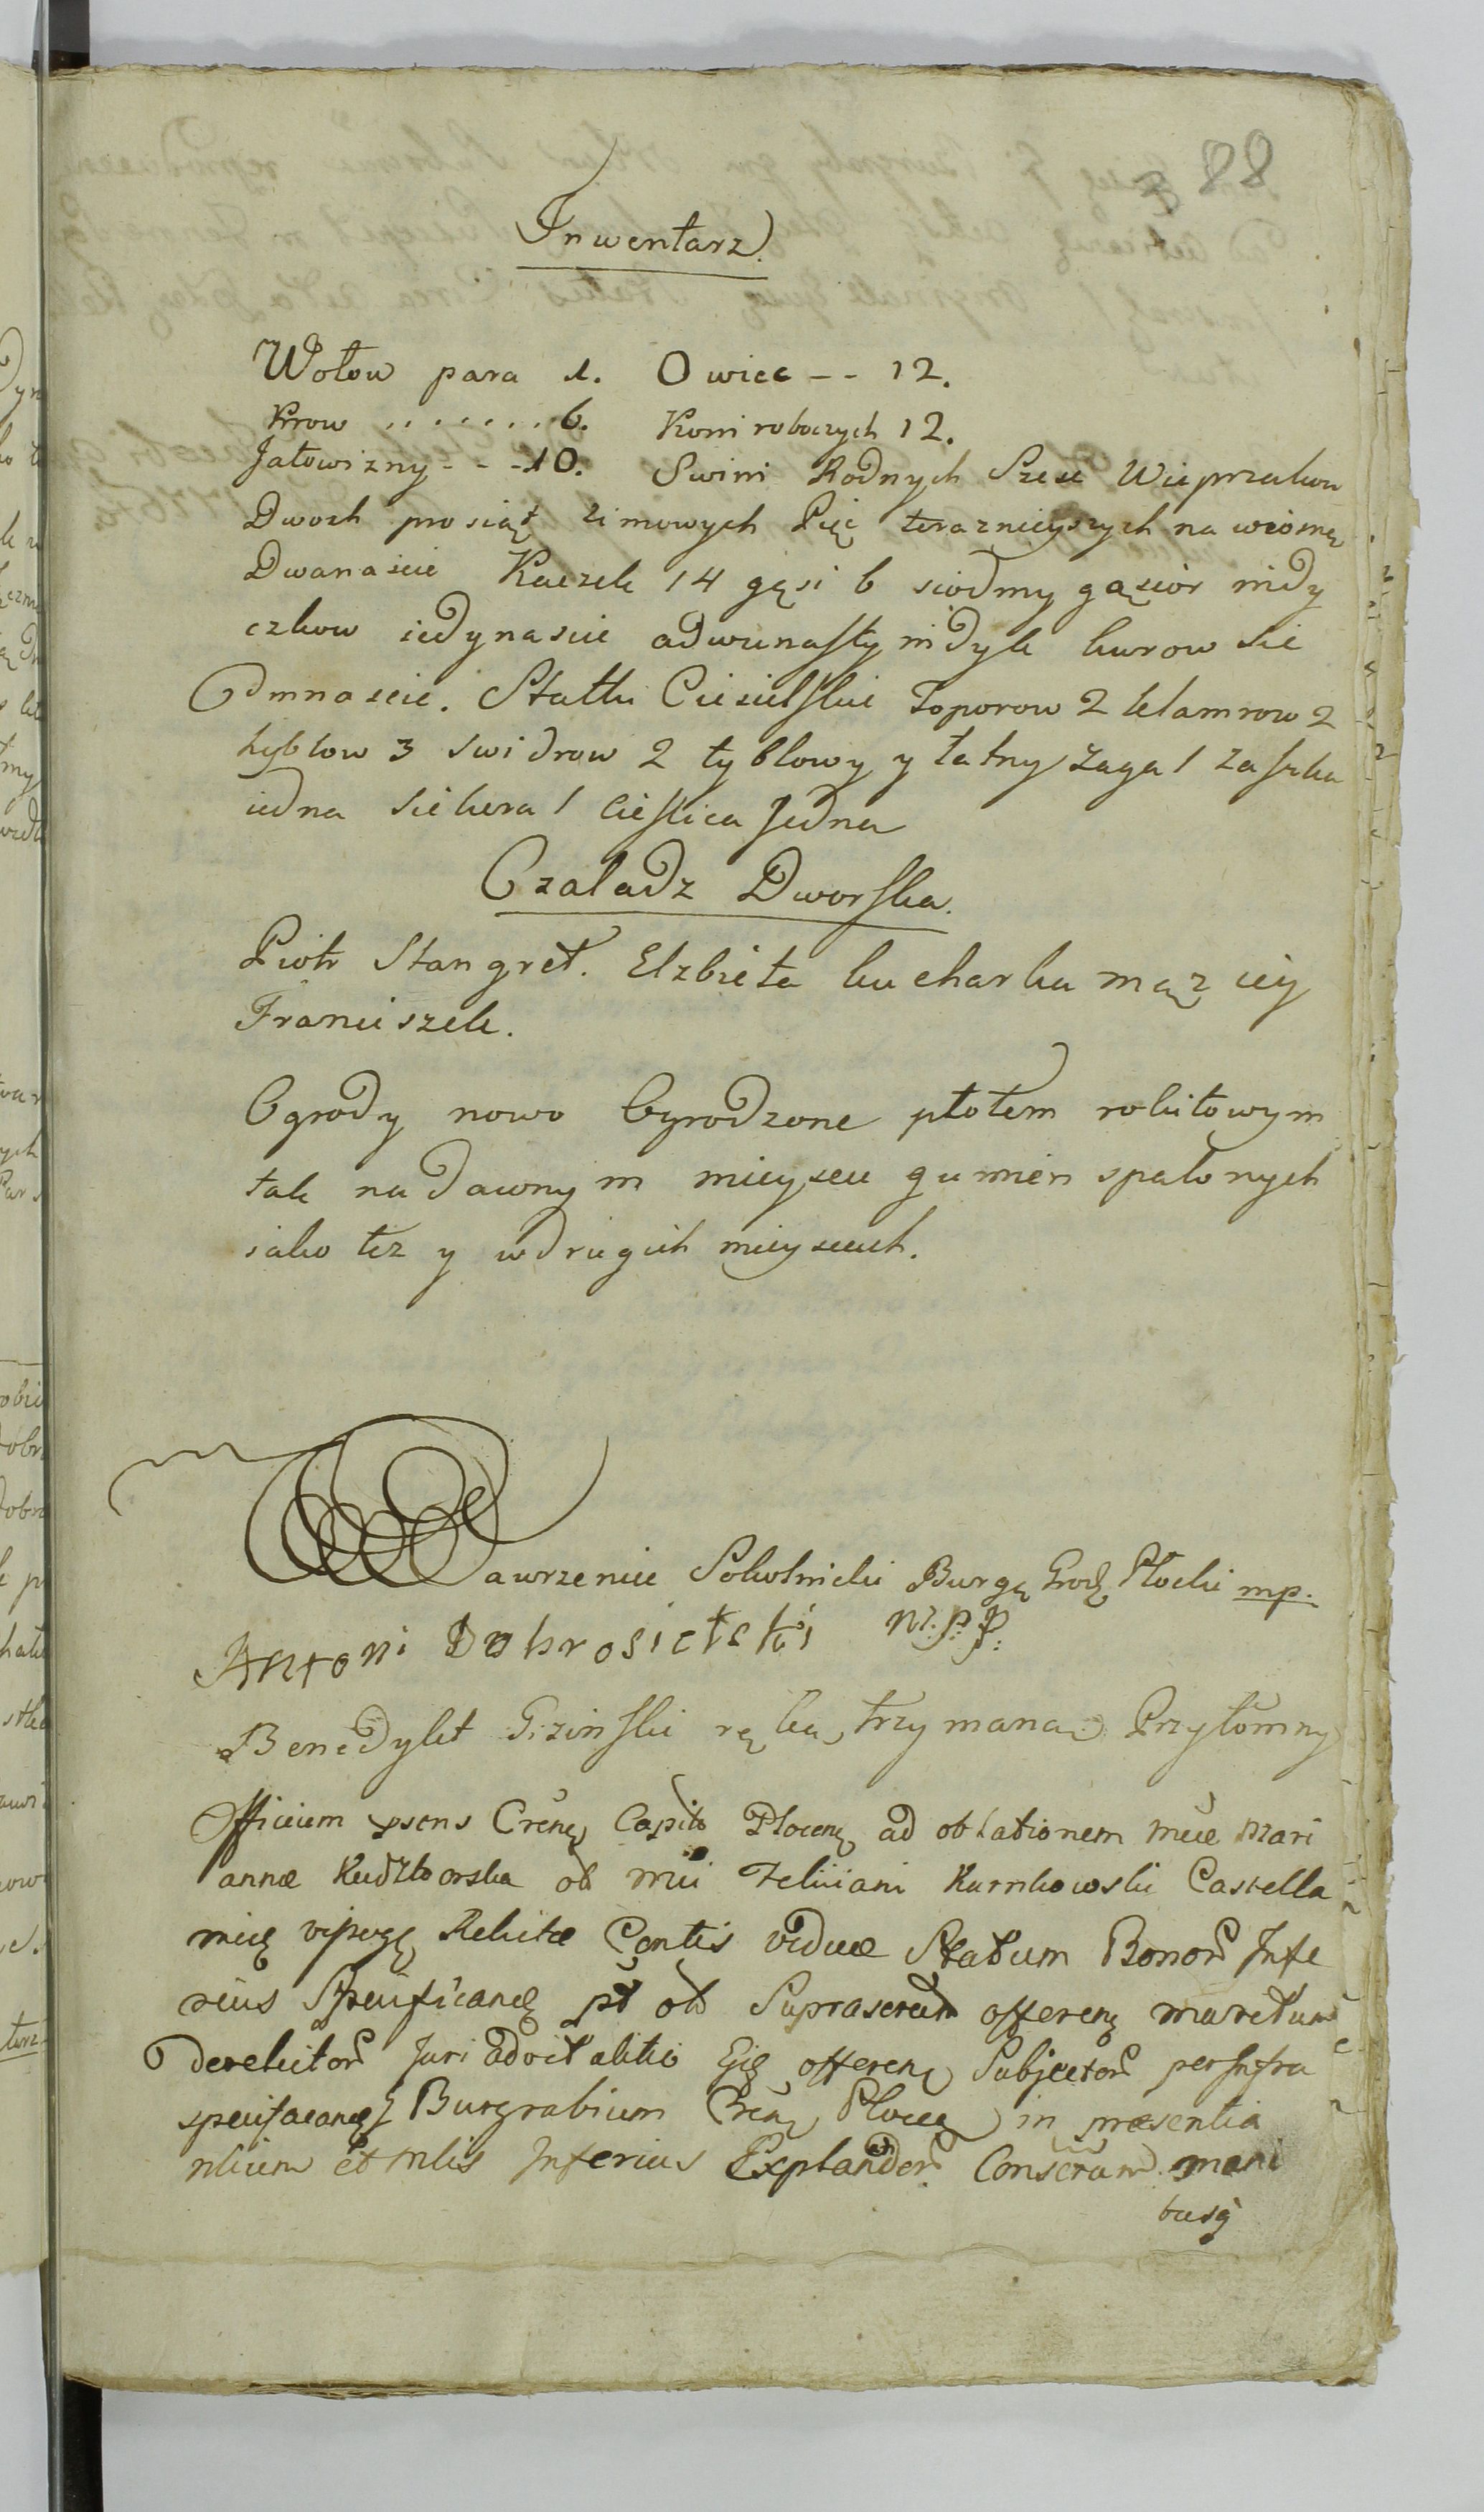 88
Inwentarz.
Wołow para 1. Owiec -- 12.
Krow ....... 6. Koni roboczych 12.
Jałowizny - - - 10. Swini Rodnych Szesc Wieprzakow
Dwoch prosiąt zimowych Pięc teraznieyszych na wiosnę
Dwanascie Kaczek 14 gęsi 6 siodmy gąsior indy
czkow iedynascie adwunasty indyk kurow Sie
dmnascie. Statki Ciesielskie Toporow 2 klamrow 2
hyblow 3 swidrow 2 tyblowy y łatny zaga 1
iedna Siekera 1 Cieslica Jedna
Czaladz Dworska.
Piotr Stangret. Elzbieta kucharka mąz iey
Franciszek.
Ogrody nowo Ogrodzone płotem rokitowym
tak na dawnym mieyscu gumien spalonych
iako tez y wdrugich mieyscach.
Wawrzeniec Sokolnicki Burgę Grodz Płocki mp.
Antoni Dobrosielski m.p.p.
Benedykt Gizinski ręką trzymaną Przytomny
Officium psens Crens Capit Plocens ad oblationem Mari
annæ ob Feliciani Karnkowski Castella
Relictæ Contis viduæ Statum Bonor Infe
rius Specificand pt ob Suprascrtum offerens maritum
derelictor Juri advitalitio Ejs offerens Subjector per Infra
specifacand Burgrabium Crens Plocens in præsentia
nlium et Inferius Explander Conscrum mani
busq